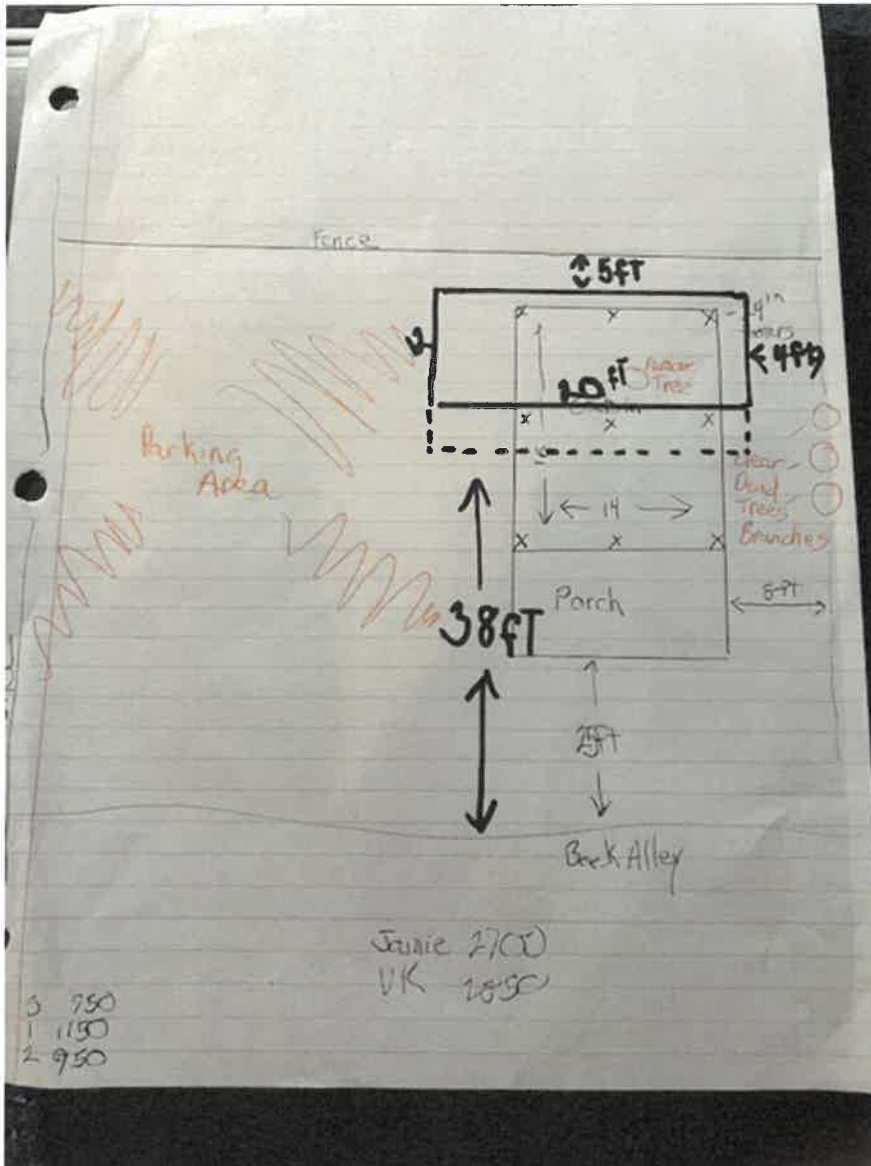 Fence
5ft
4ft
20 ft
Tree
Parking
Area
Clear
Dead
Trees
Branches
14
Porch
8ft
38fT
25ft
Back Alley
Jamie 2700
VK
3 750
1 1150
2 950